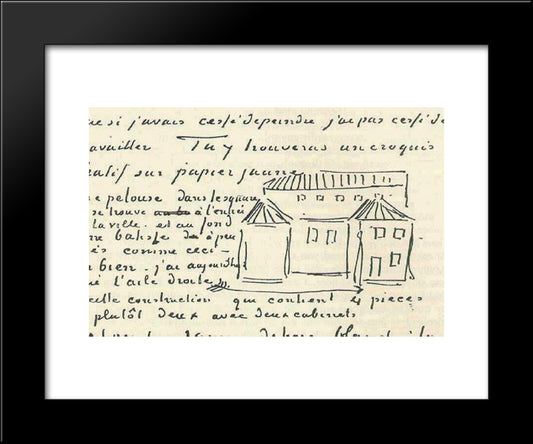 si j'avais cessé de peindre j'ai pas cessé de
Tu y trouveras un croquis
sur papier jaune
pelouse dans lesquels
se trouve à l'entrée
la ville. et au fond
batisse à peu
comme ceci –
bien. j'ai aujourd'hui
l'aile droite
cette construction qui contient 4 pièces
plutôt deux avec deux cabinets